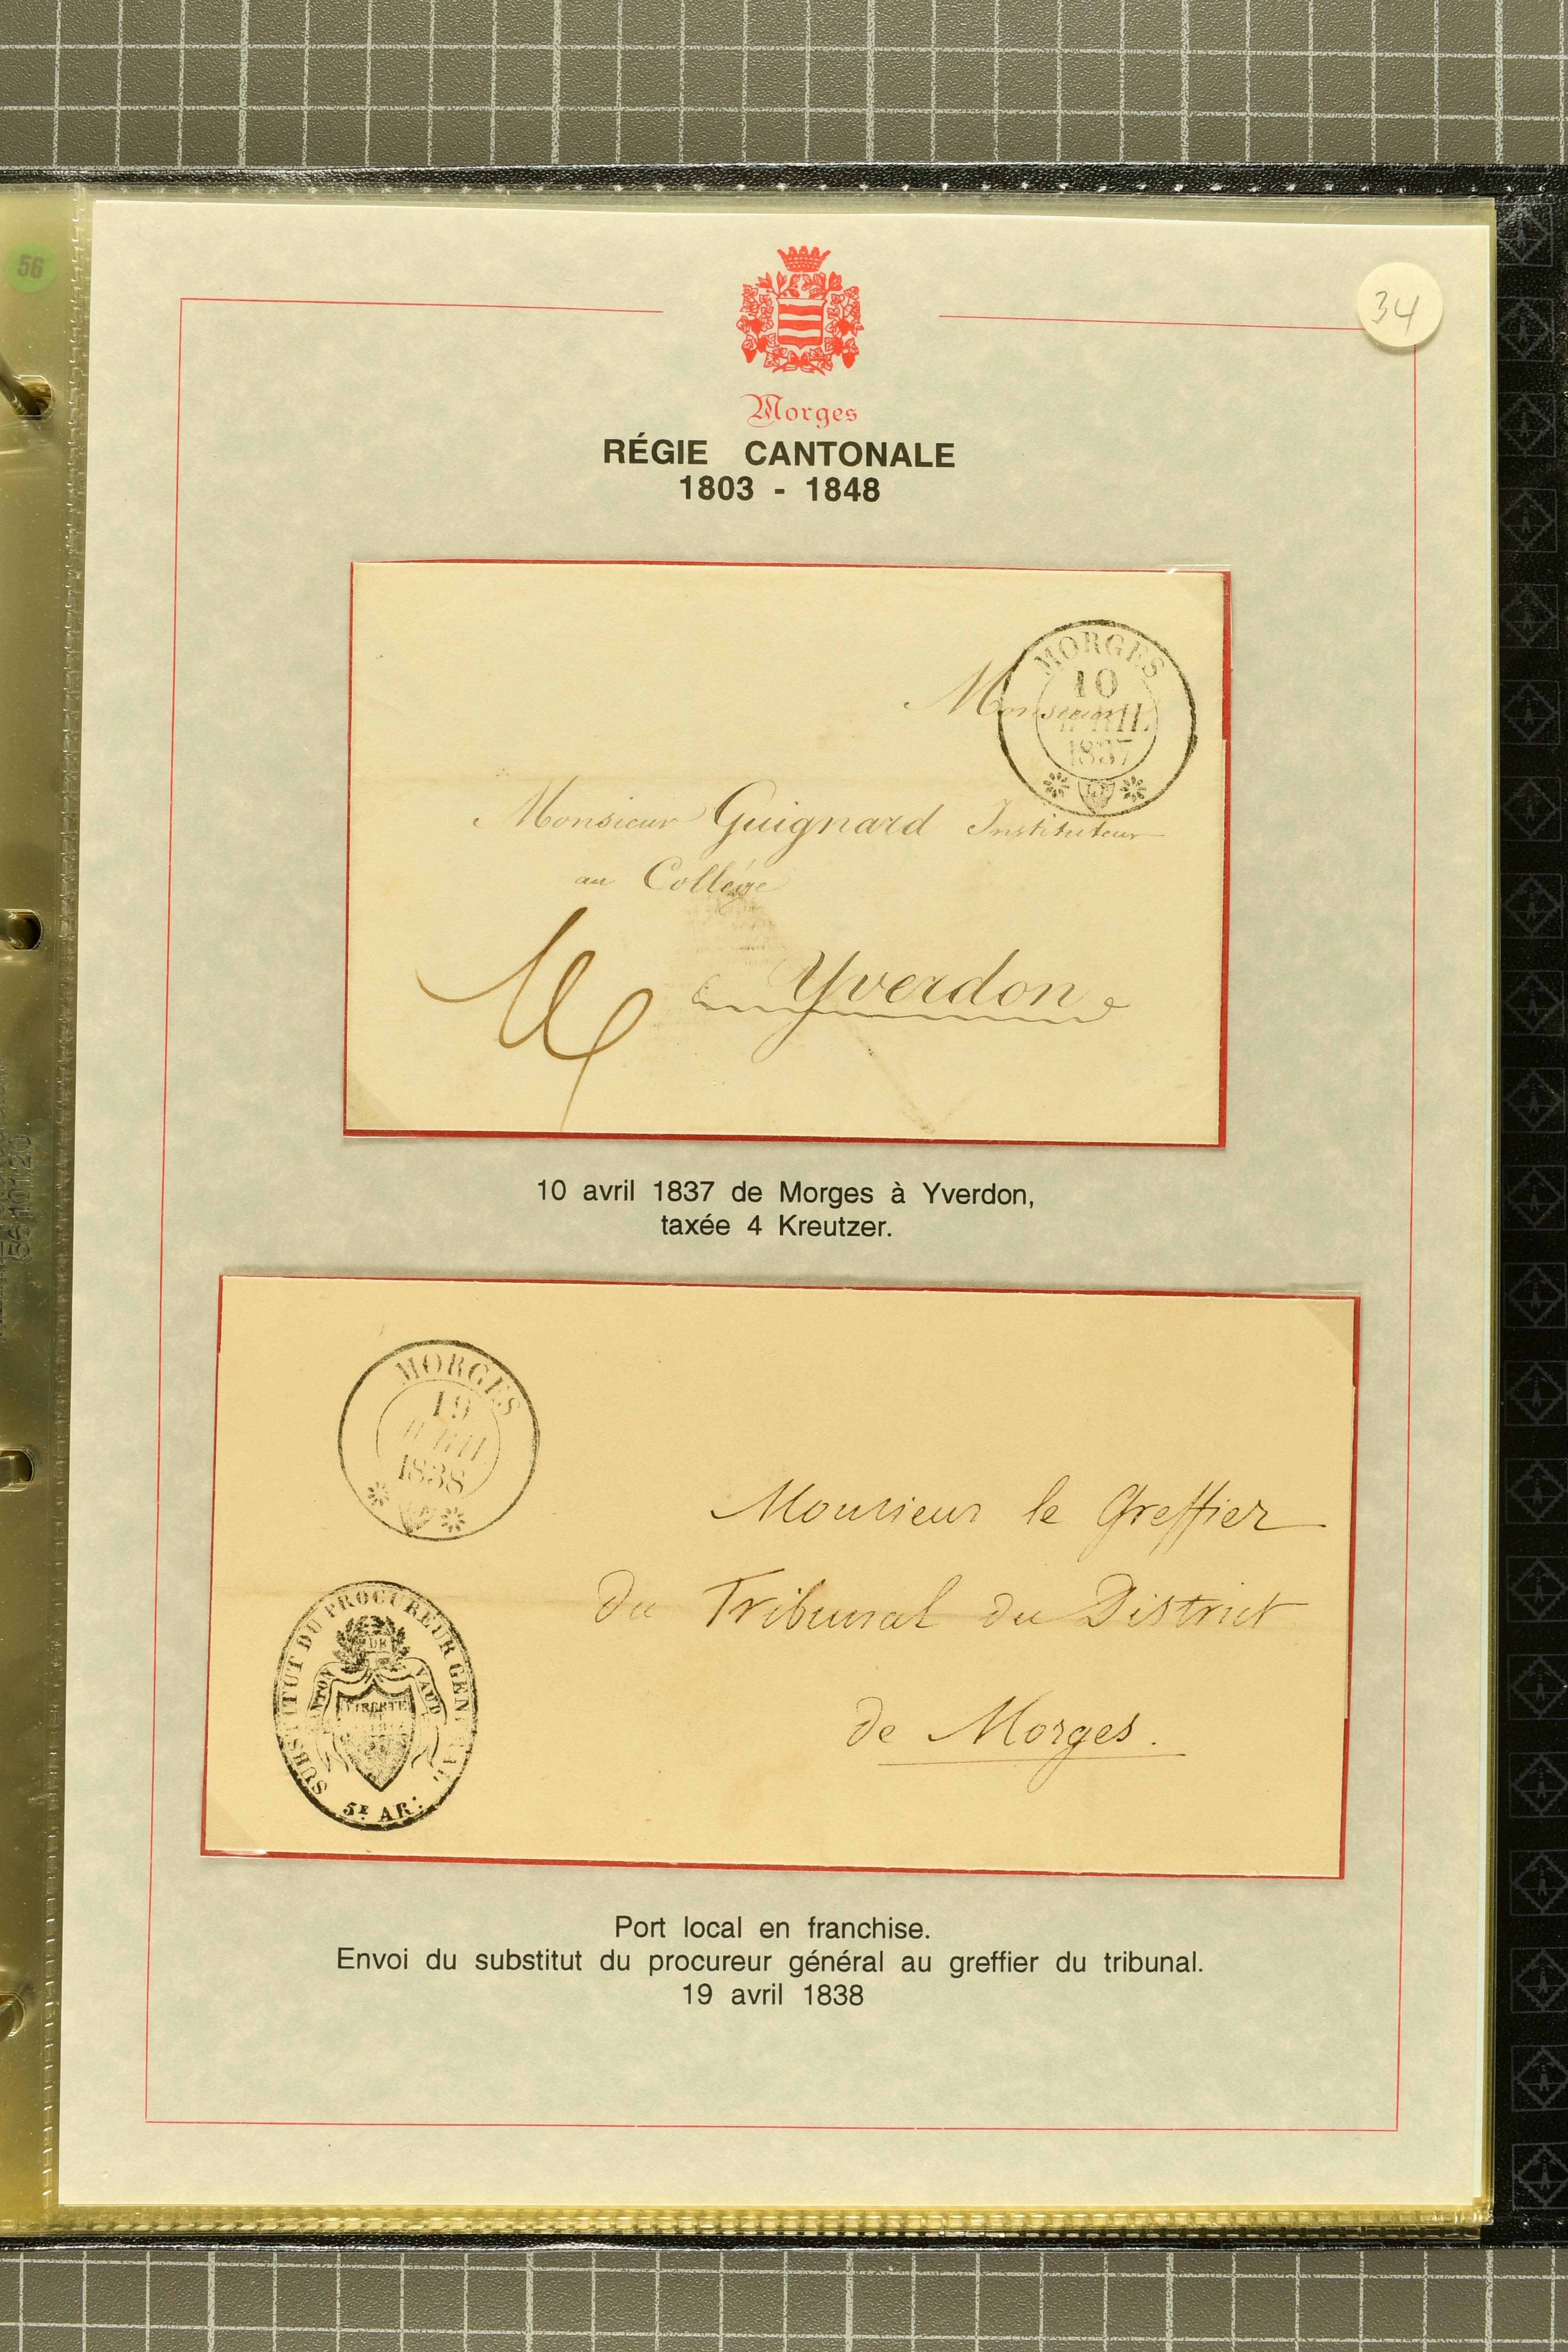 56
34
Morges
RÉGIE CANTONALE
1803 - 1848
MORGES
10
AVRIL
1837
Monsieur
Monsieur Guignard Instituteur
au Collége
4
Yverdon
10 avril 1837 de Morges à Yverdon,
taxée 4 Kreutzer.
MORGES
19
AVRIL
1838
Monsieur le Greffier
du Tribunal du District
de Morges.
SUBSTITUT DU PROCUREUR GENERAL
CANTON DE VAUD
LIBERTE
5E AR:
Port local en franchise.
Envoi du substitut du procureur général au greffier du tribunal.
19 avril 1838